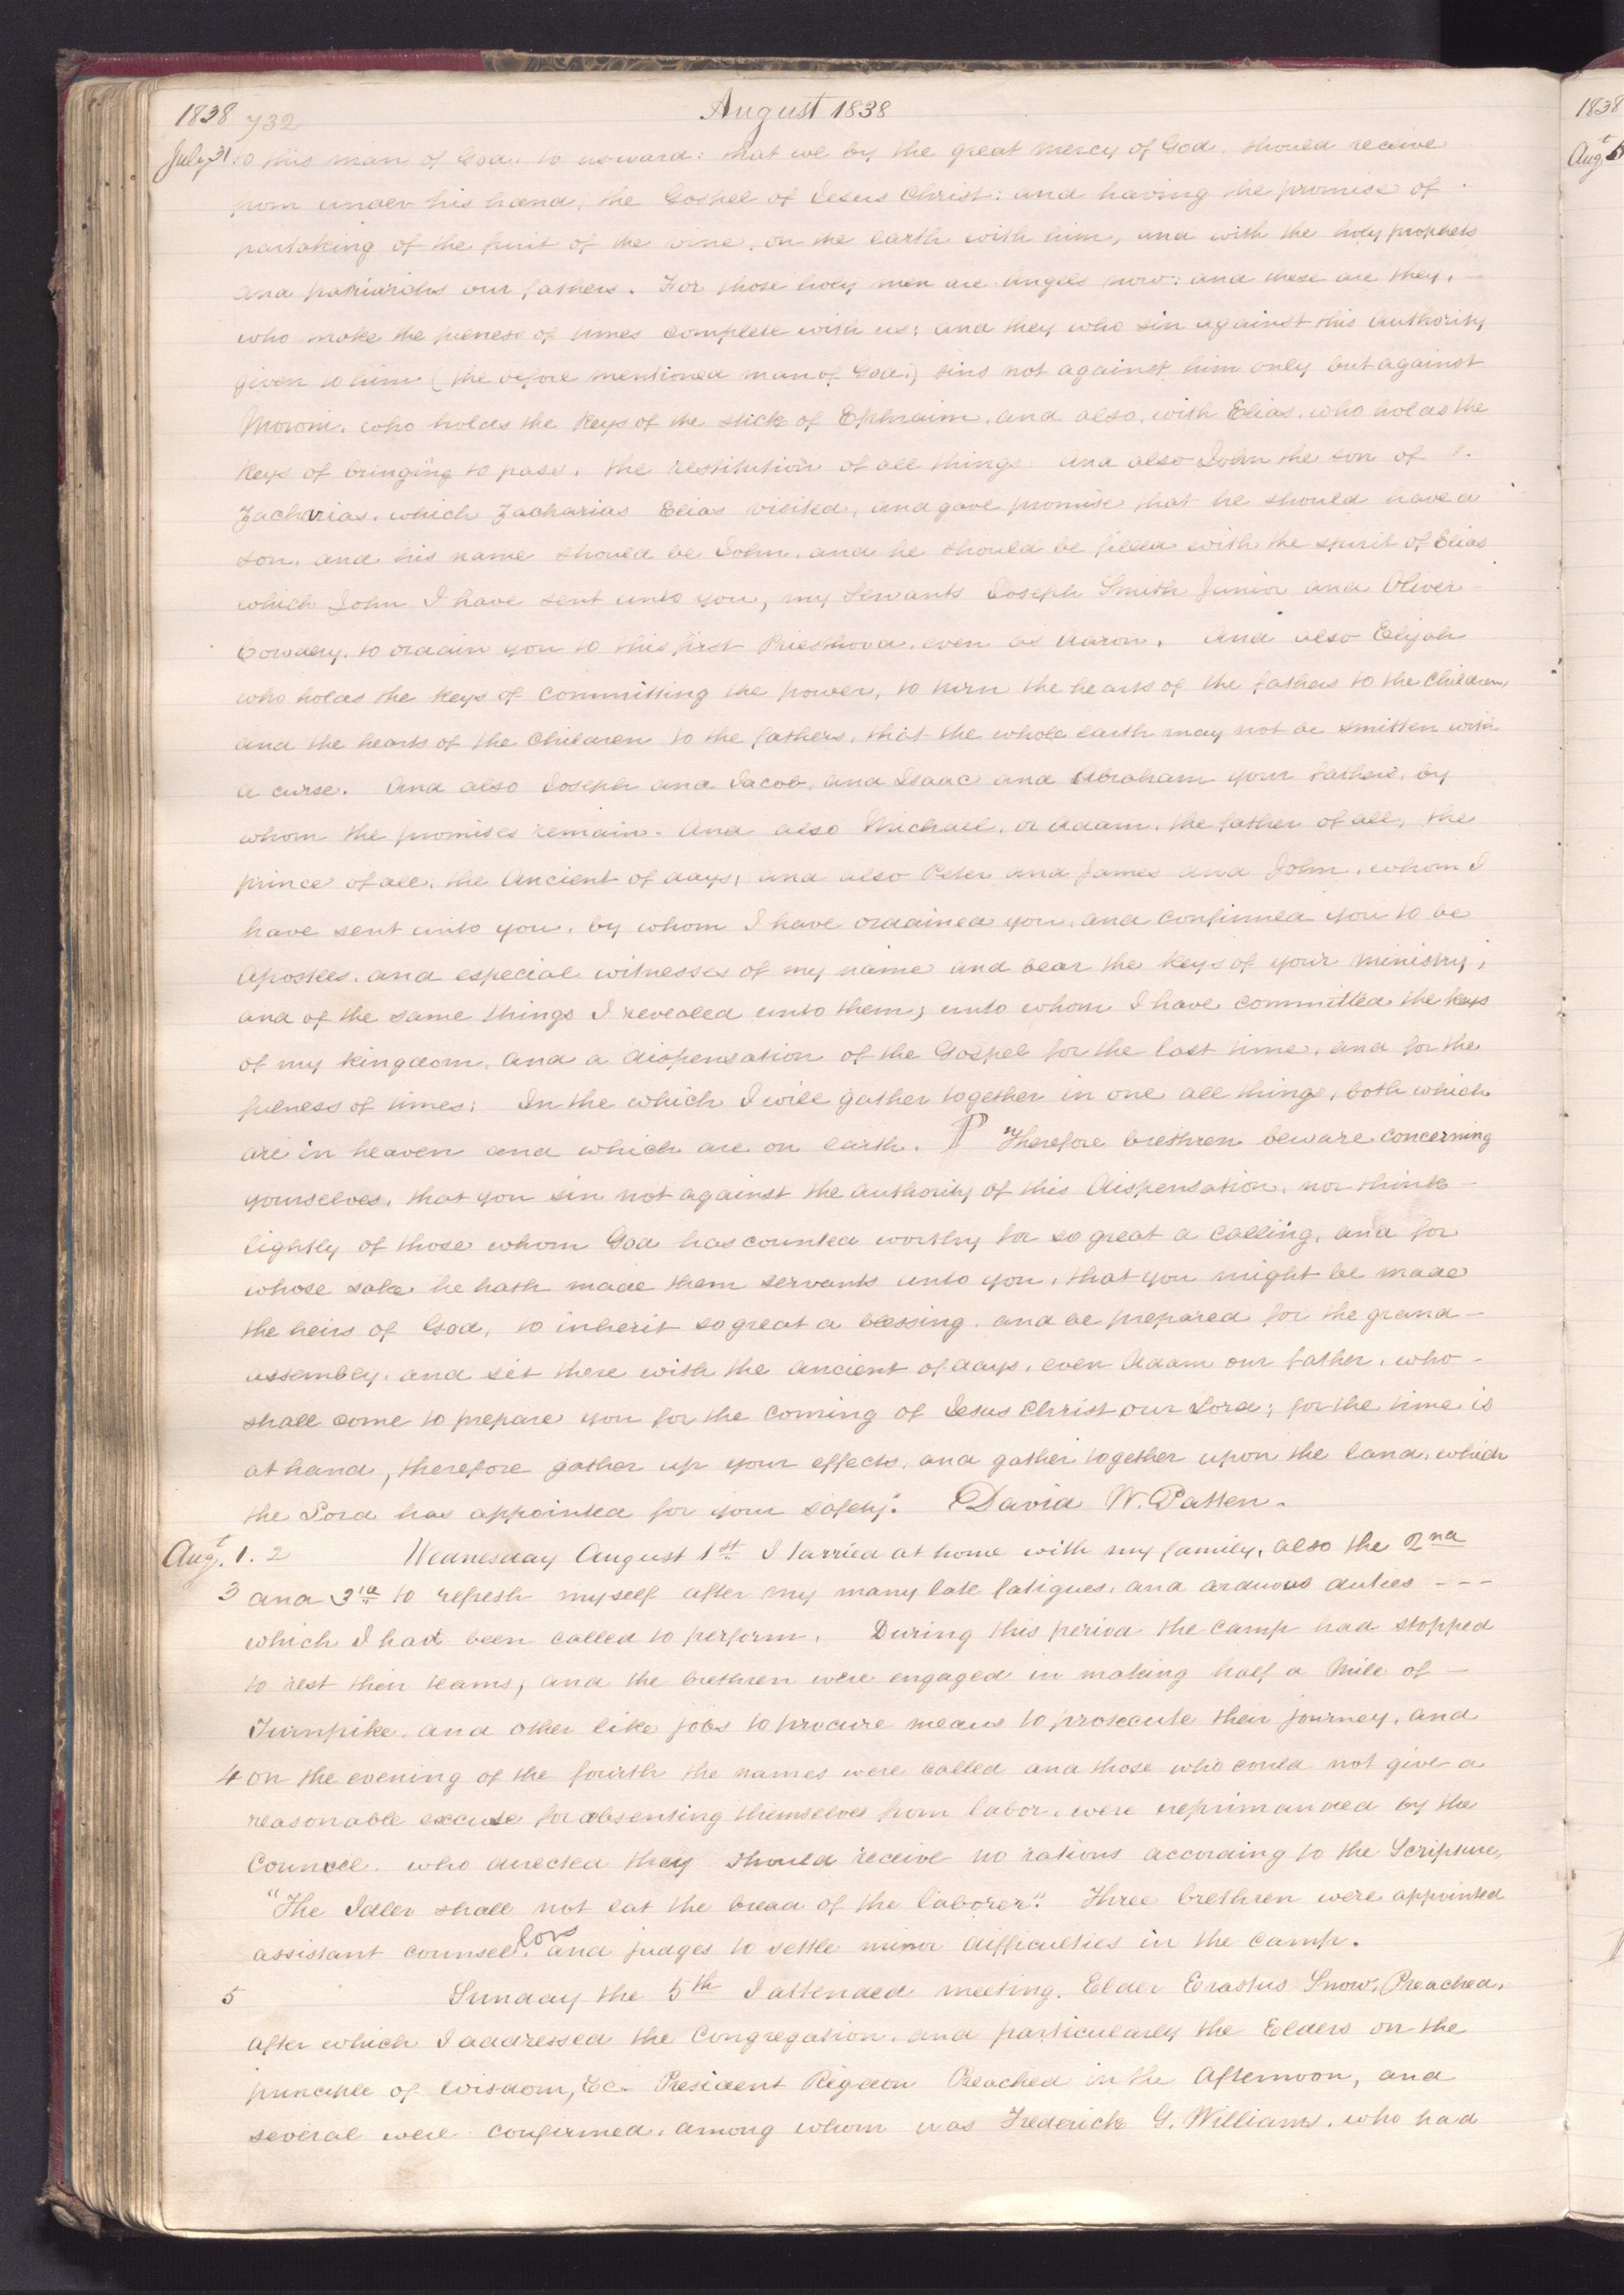 1838 732 August 1838 1838
July 31. to this man of God. to usward: that we by the great mercy of God. should receive
from under his hand, the Gospel of Jesus Christ: and having the promise of
partaking of the fruit of the vine, on the earth with him, and with the holy prophets
and patriarchs our fathers. For those holy men are angels now: and these are they,—
who make the fulness of times complete with us; and they who sin against this Authority
given to him (the before mentioned man of God;) sins not against him only but against
Moroni, who holds the keys of the stick of Ephraim, and also, with Elias, who holds the
keys of bringing to pass, the restitution of all things: And also John the son of
Zacharias, which Zacharias Elias visited, and gave promise that he should have a
son, and his name should be John, and he should be filled with the spirit of Elias
which John I have sent unto you, my Servants Joseph Smith Junior and Oliver
Cowdery, to ordain you to this first Priesthood, even as Aaron. And also Elijah
who holds the keys of committing the power, to turn the hearts of the fathers to the Children,
and the hearts of the Children to the fathers, that the whole earth may not be smitten with
a curse. And also Joseph and Jacob, and Isaac and Abraham your fathers, by
whom the promises remain. And also Michael, or Adam, the father of all, the
prince of all, the Ancient of days, and also Peter and James and John, whom I
have sent unto you, by whom I have ordained you, and confirmed you to be
Apostles, and especial witnesses of my name and bear the keys of your ministry,
and of the same things I revealed unto them; unto whom I have committed the keys
of my kingdom, and a dispensation of the Gospel for the last time, and for the
fulness of times; In the which I will gather together in one all things, both which
are in heaven and which are on earth. ¶ "Therefore brethren beware concerning
yourselves, that you sin not against the authority of this dispensation, nor think—
lightly of those whom God has counted worthy for so great a calling, and for
whose sake he hath made them servants unto you, that you might be made
the heirs of God, to inherit so great a blessing, and be prepared for the grand—
assembly, and sit there with the ancient of days, even Adam our father, who—
shall come to prepare you for the coming of Jesus Christ our Lord; for the time is
at hand, therefore gather up your effects, and gather together upon the land, which
the Lord has appointed for your safety." David W. Patten.
Augt. 1. 2 Wednesday August 1st I tarried at home with my family, also the 2nd
3 and 3rd to refresh myself after my many late fatigues, and arduous duties - - -
which I had been called to perform. During this period the camp had stopped
to rest their teams, and the brethren were engaged in making half a Mile of—
Turnpike, and other like jobs to procure means to prosecute their journey, and
4 on the evening of the fourth the names were called and those who could not give a
reasonable excuse for absenting themselves from labor, were reprimanded by the
Council, who directed they should receive no rations according to the Scripture,
"The Idler shall not eat the bread of the laborer." Three brethren were appointed
assistant counsellors and judges to settle minor difficulties in the camp.
5 Sunday the 5th I attended meeting. Elder Erastus Snow, Preached,
after which I addressed the Congregation, and particularly the Elders on the
principle of wisdom, &c. President Rigdon Preached in the Afternoon, and
several were confirmed, among whom was Frederick G. Williams, who had
Augt. 5